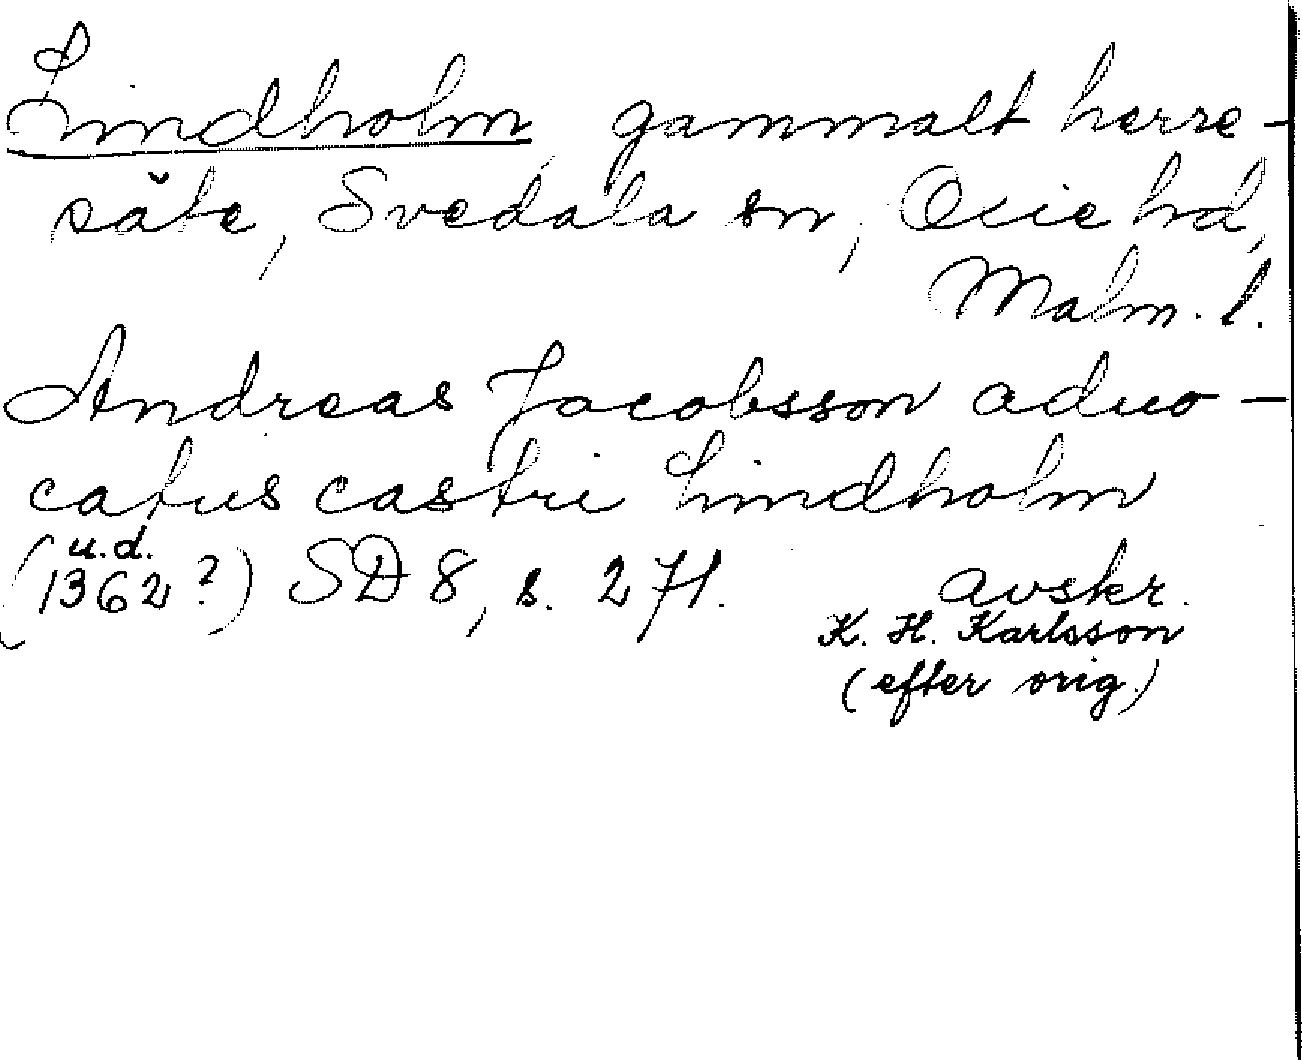 Lindholm, gammalt herre-
säte, Svedala sn, Oxie hd,
Malm. l.
Andreas Jacobsson aduo-
catus castri Lindholm
u.d.
(1362?) SD 8, s. 271. avskr.
K. H. Karlsson
(efter orig.)